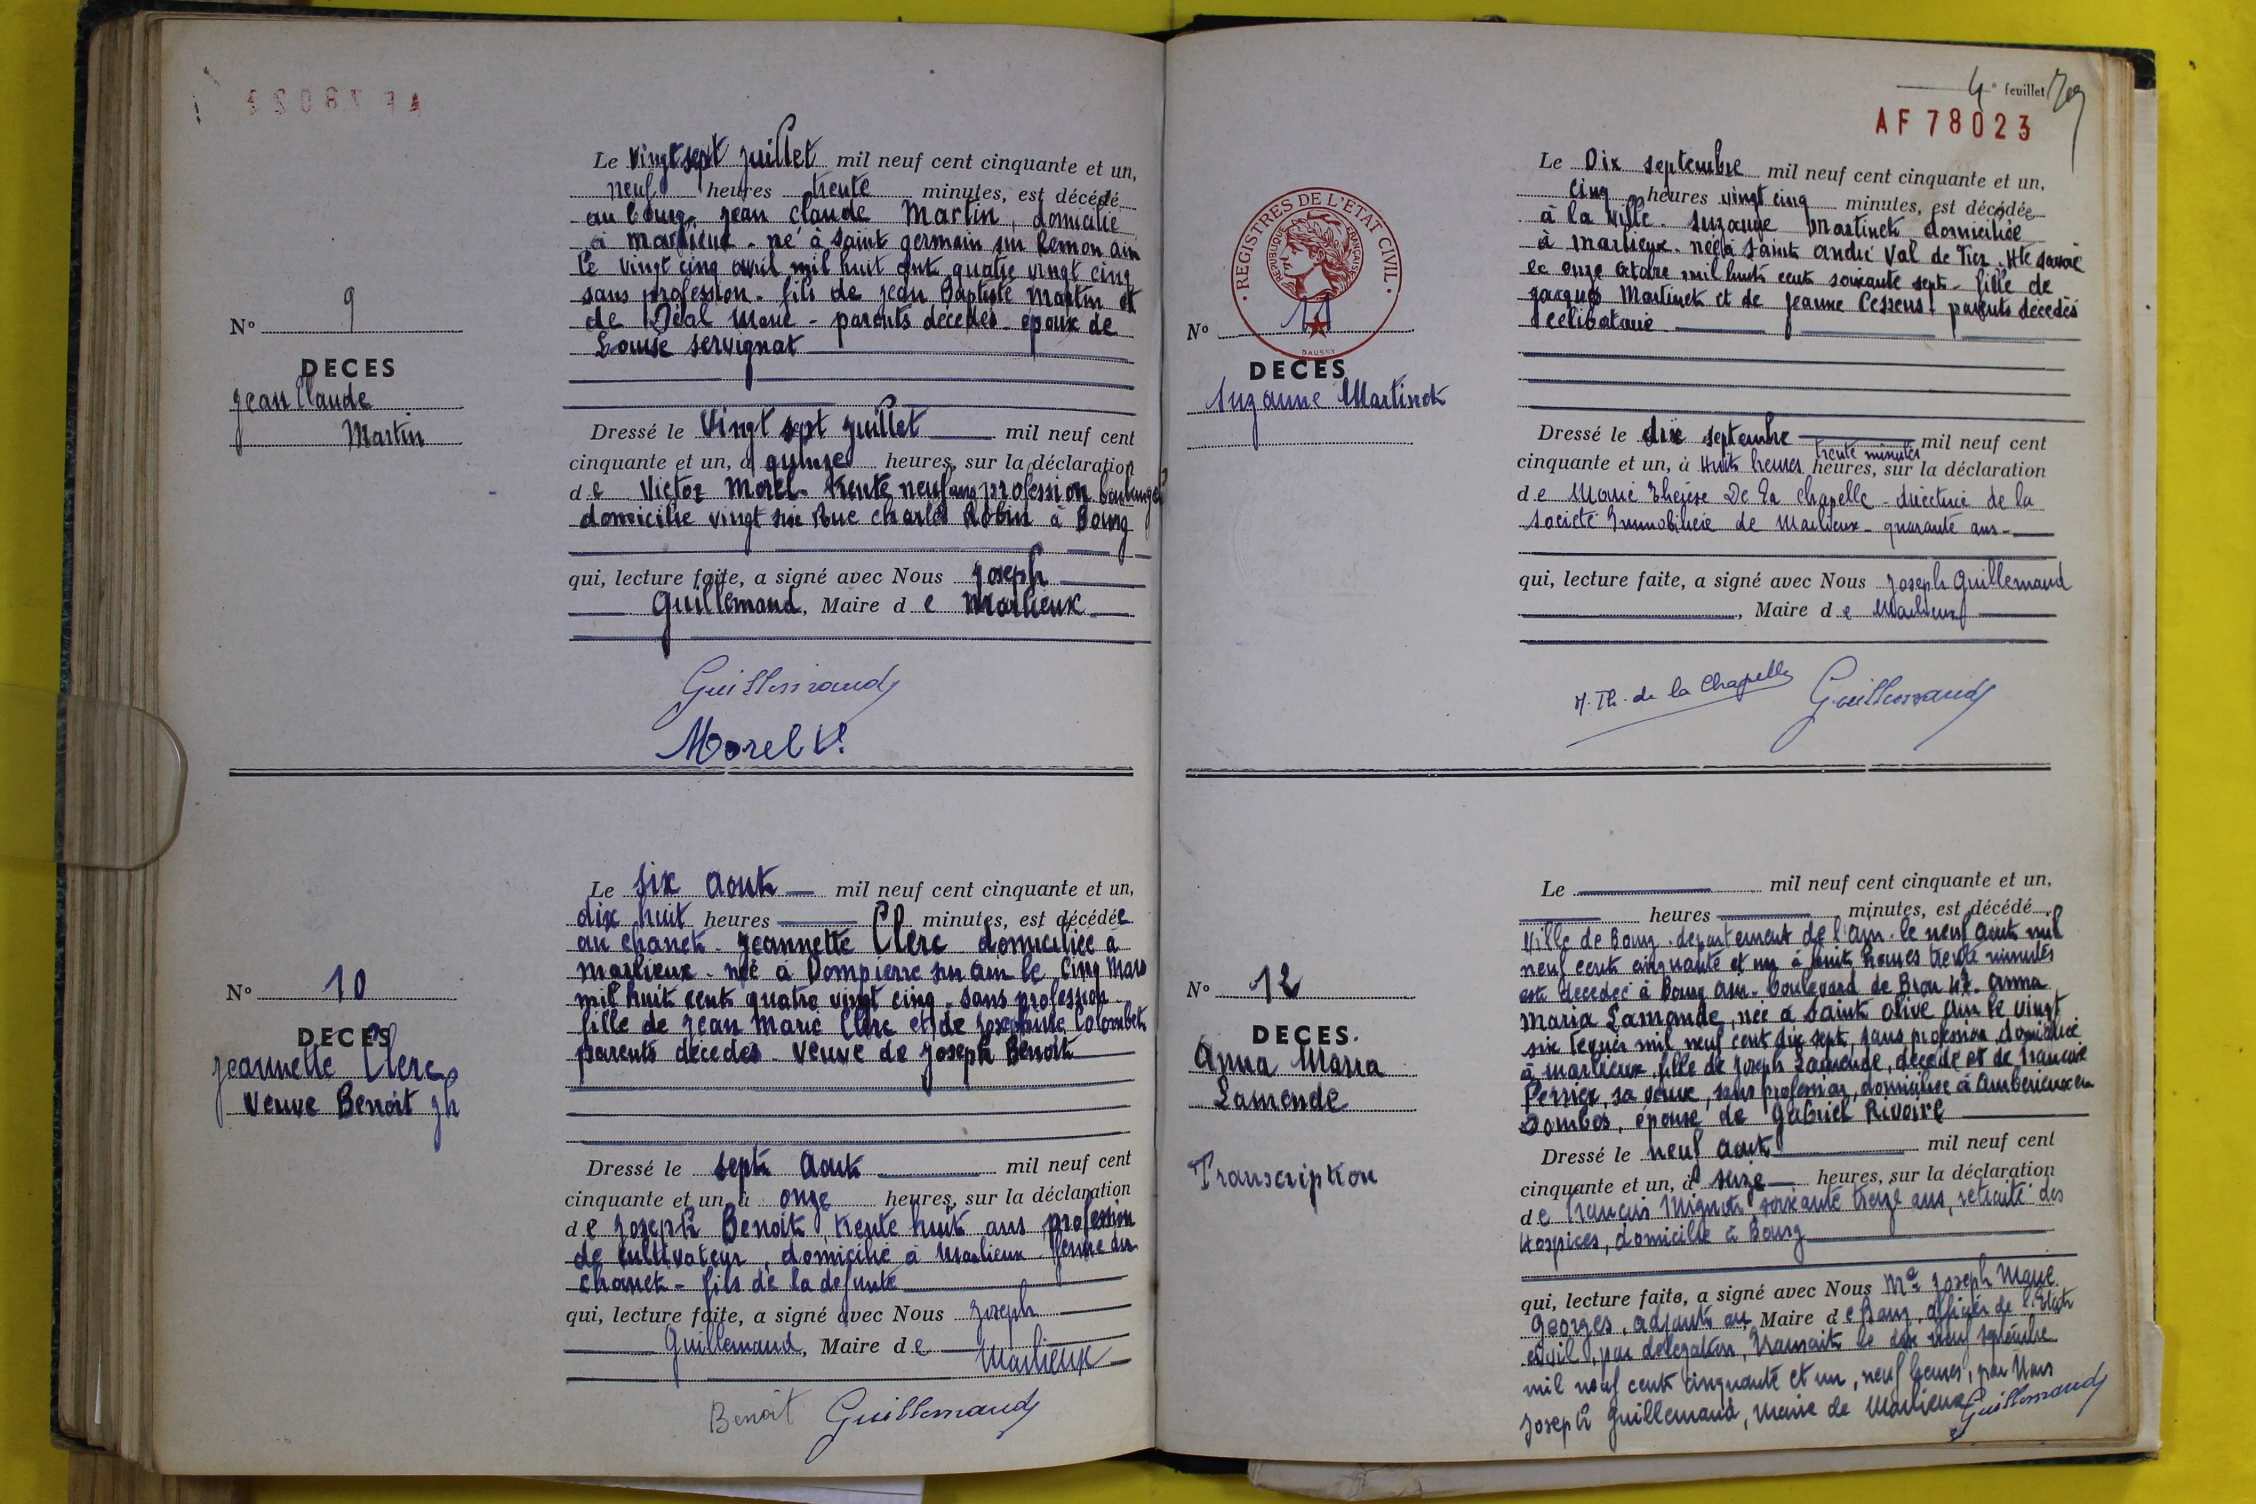 AF 78023
Le vingt sept juillet mil neuf cent cinquante et un,
neuf heures trente minutes, est décédé
au bourg. jean claude Martin, domicilié
à marlieux - né à saint germain sur Renon ain
le vingt cinq avril mil huit cent quatre vingt cinq
sans profession - fils de jean Baptiste Martin et
de Déal Marie - parents décédés - époux de
Louise servignat
N° 9
DECES
jean Claude
Martin
Dressé le vingt sept juillet mil neuf cent
cinquante et un, à quinze heures, sur la déclaration
de Victor Morel. trente neuf ans profession boulanger
domicilié vingt six Rue charles Robin à Bourg
qui, lecture faite, a signé avec Nous joseph
Guillemaud, Maire de Marlieux
Guillemaud
Morel V.
Le six aout mil neuf cent cinquante et un,
dix huit heures minutes, est décédée
au chanet. jeannette Clerc domiciliée à
marlieux - née à Dompierre sur ain le cinq mars
mil huit cent quatre vingt cinq - sans profession -
fille de jean Marie Clerc et de josephine Colombet
parents décédés - veuve de joseph Benoit
N° 10
DECES
jeannette Clerc
veuve Benoit jh
Dressé le sept aout mil neuf cent
cinquante et un, à onze heures, sur la déclaration
de joseph Benoit, trente huit ans profession
de cultivateur, domicilié à Marlieux ferme du
chanet - fils de la defunte
qui, lecture faite, a signé avec Nous joseph
Guillemaud, Maire de
Marlieux
Benoit Guillemaud
4e feuillet
AF 78023
REGISTRES DE L'ETAT CIVIL
REPUBLIQUE FRANÇAISE
DAUSSY
Le Dix septembre mil neuf cent cinquante et un,
cinq heures vingt cinq minutes, est décédée
à la ville. suzanne Martinet domiciliée
à marlieux. née à saint andré Val de Fier. Hte savoie
le onze octobre mil huit cent soixante sept - fille de
jacques Martinet et de jeanne Cessens. parents décédés
célibataire
N° 11
DECES
suzanne Martinet
Dressé le dix septembre mil neuf cent
trente minutes
cinquante et un, à Huit heures heures, sur la déclaration
de Marie Thérèse De la chapelle - directrice de la
société Immobilière de Marlieux - quarante ans -
qui, lecture faite, a signé avec Nous joseph Guillemaud
, Maire de Marlieux
M. Th. de la Chapelle Guillemaud
Le mil neuf cent cinquante et un,
heures minutes, est décédé
Ville de Bourg. departement de l'ain. le neuf aout mil
neuf cent cinquante et un à huit heures trente minutes
est décédée à Bourg ain. boulevard de Brou 47. anna
Maria Lamende, née à saint olive ain le vingt
six février mil neuf cent dix sept, sans profession domiciliée
à marlieux, fille de joseph Lamende, décédé et de francoise
Perrier, sa veuve, sans profession, domiciliée à amberieux en
Dombes, épouse de Gabriel Rivoire
N° 12
DECES.
Anna Maria
Lamende
Transcription
Dressé le neuf aout mil neuf cent
cinquante et un, à seize heures, sur la déclaration
de francois Mignot, soixante treize ans, retraité des
Hospices, domicilié à Bourg
qui, lecture faite, a signé avec Nous joseph
georges, adjoint au Maire de Bourg, officier de l'Etat
civil, par delegation, transcrit le dix neuf septembre
mil neuf cent cinquante et un, neuf heures, par Nous
joseph Guillemaud, maire de Marlieux
Guillemaud